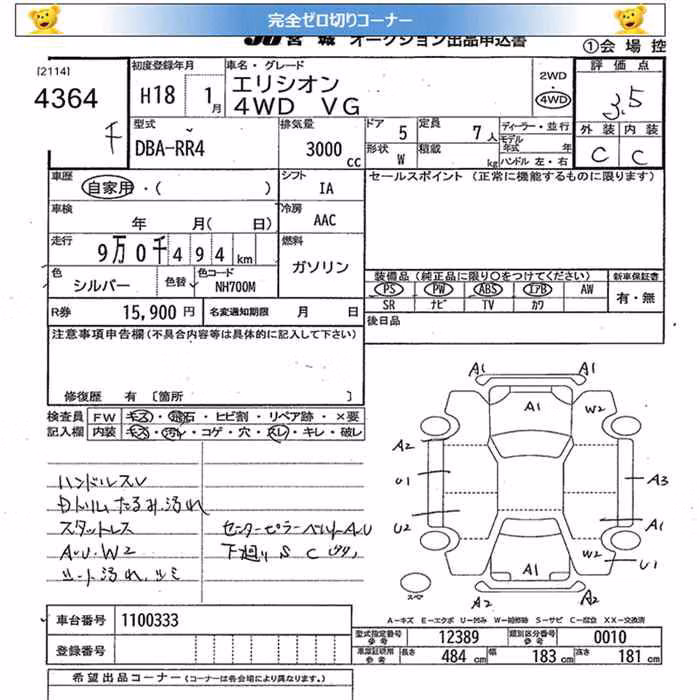 完全ゼロ切りコーナー
JU宮城 オークション出品申込書
①会場控
[2114]
4364
初度登録年月
H18 1月
車名・グレード
エリシオン
4WD VG
2WD
4WD
評価点
3.5
外装 内装
C C
型式
DBA-RR4
排気量
3000cc
ドア 5
定員 7人
ディーラー・並行
モデル年式 年
形状 W
積載 kg
ハンドル 左・右
車歴
自家用・( )
シフト
IA
セールスポイント (正常に機能するものに限ります)
車検
年 月( 日)
冷房
AAC
走行
9万0千494km
燃料
ガソリン
色
シルバー
色替
色コード
NH700M
装備品(純正品に限り○をつけてください)
新車保証書
PS PW ABS エアB AW
有・無
SR ナビ TV カワ
R券 15,900円
名変通知期限 月 日
後日品
注意事項申告欄(不具合内容等は具体的に記入して下さい)
修復歴 有 〔箇所 〕
検査員 FW キズ・飛石・ヒビ割・リペア跡・×要
記入欄 内装 キズ・汚レ・コゲ・穴・スレ・キレ・破レ
ハンドルスレ
Dトリムたるみ汚れ
スタットレス
A.U.W2
シート汚れ.シミ
センターピラーベルトA.U
下廻り S C
A1 A1
A1 W2
A2
U1 A3
U2 A1
W2 U1
A1
A2 A2
スペア
A-キズ E-エクボ U-凹み W-補修跡 S-サビ C-腐食 XX-交換済
車台番号 1100333
登録番号
型式指定番号 参考 12389
類別区分番号 参考 0010
車庫証明用 参考 長さ 484cm 幅 183cm 高さ 181cm
希望出品コーナー(コーナーは各会場により異なります。)